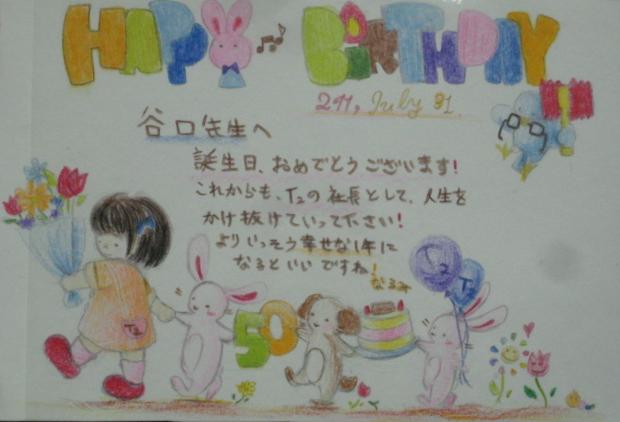 HAPPY BIRTHDAY
2011, July 31.
谷口先生へ
誕生日、おめでとうございます!
これからも、T2の社長として、人生を
かけ抜けていって下さい!
よりいっそう幸せな1年に
なるといいですね!
なるみ
50
T2